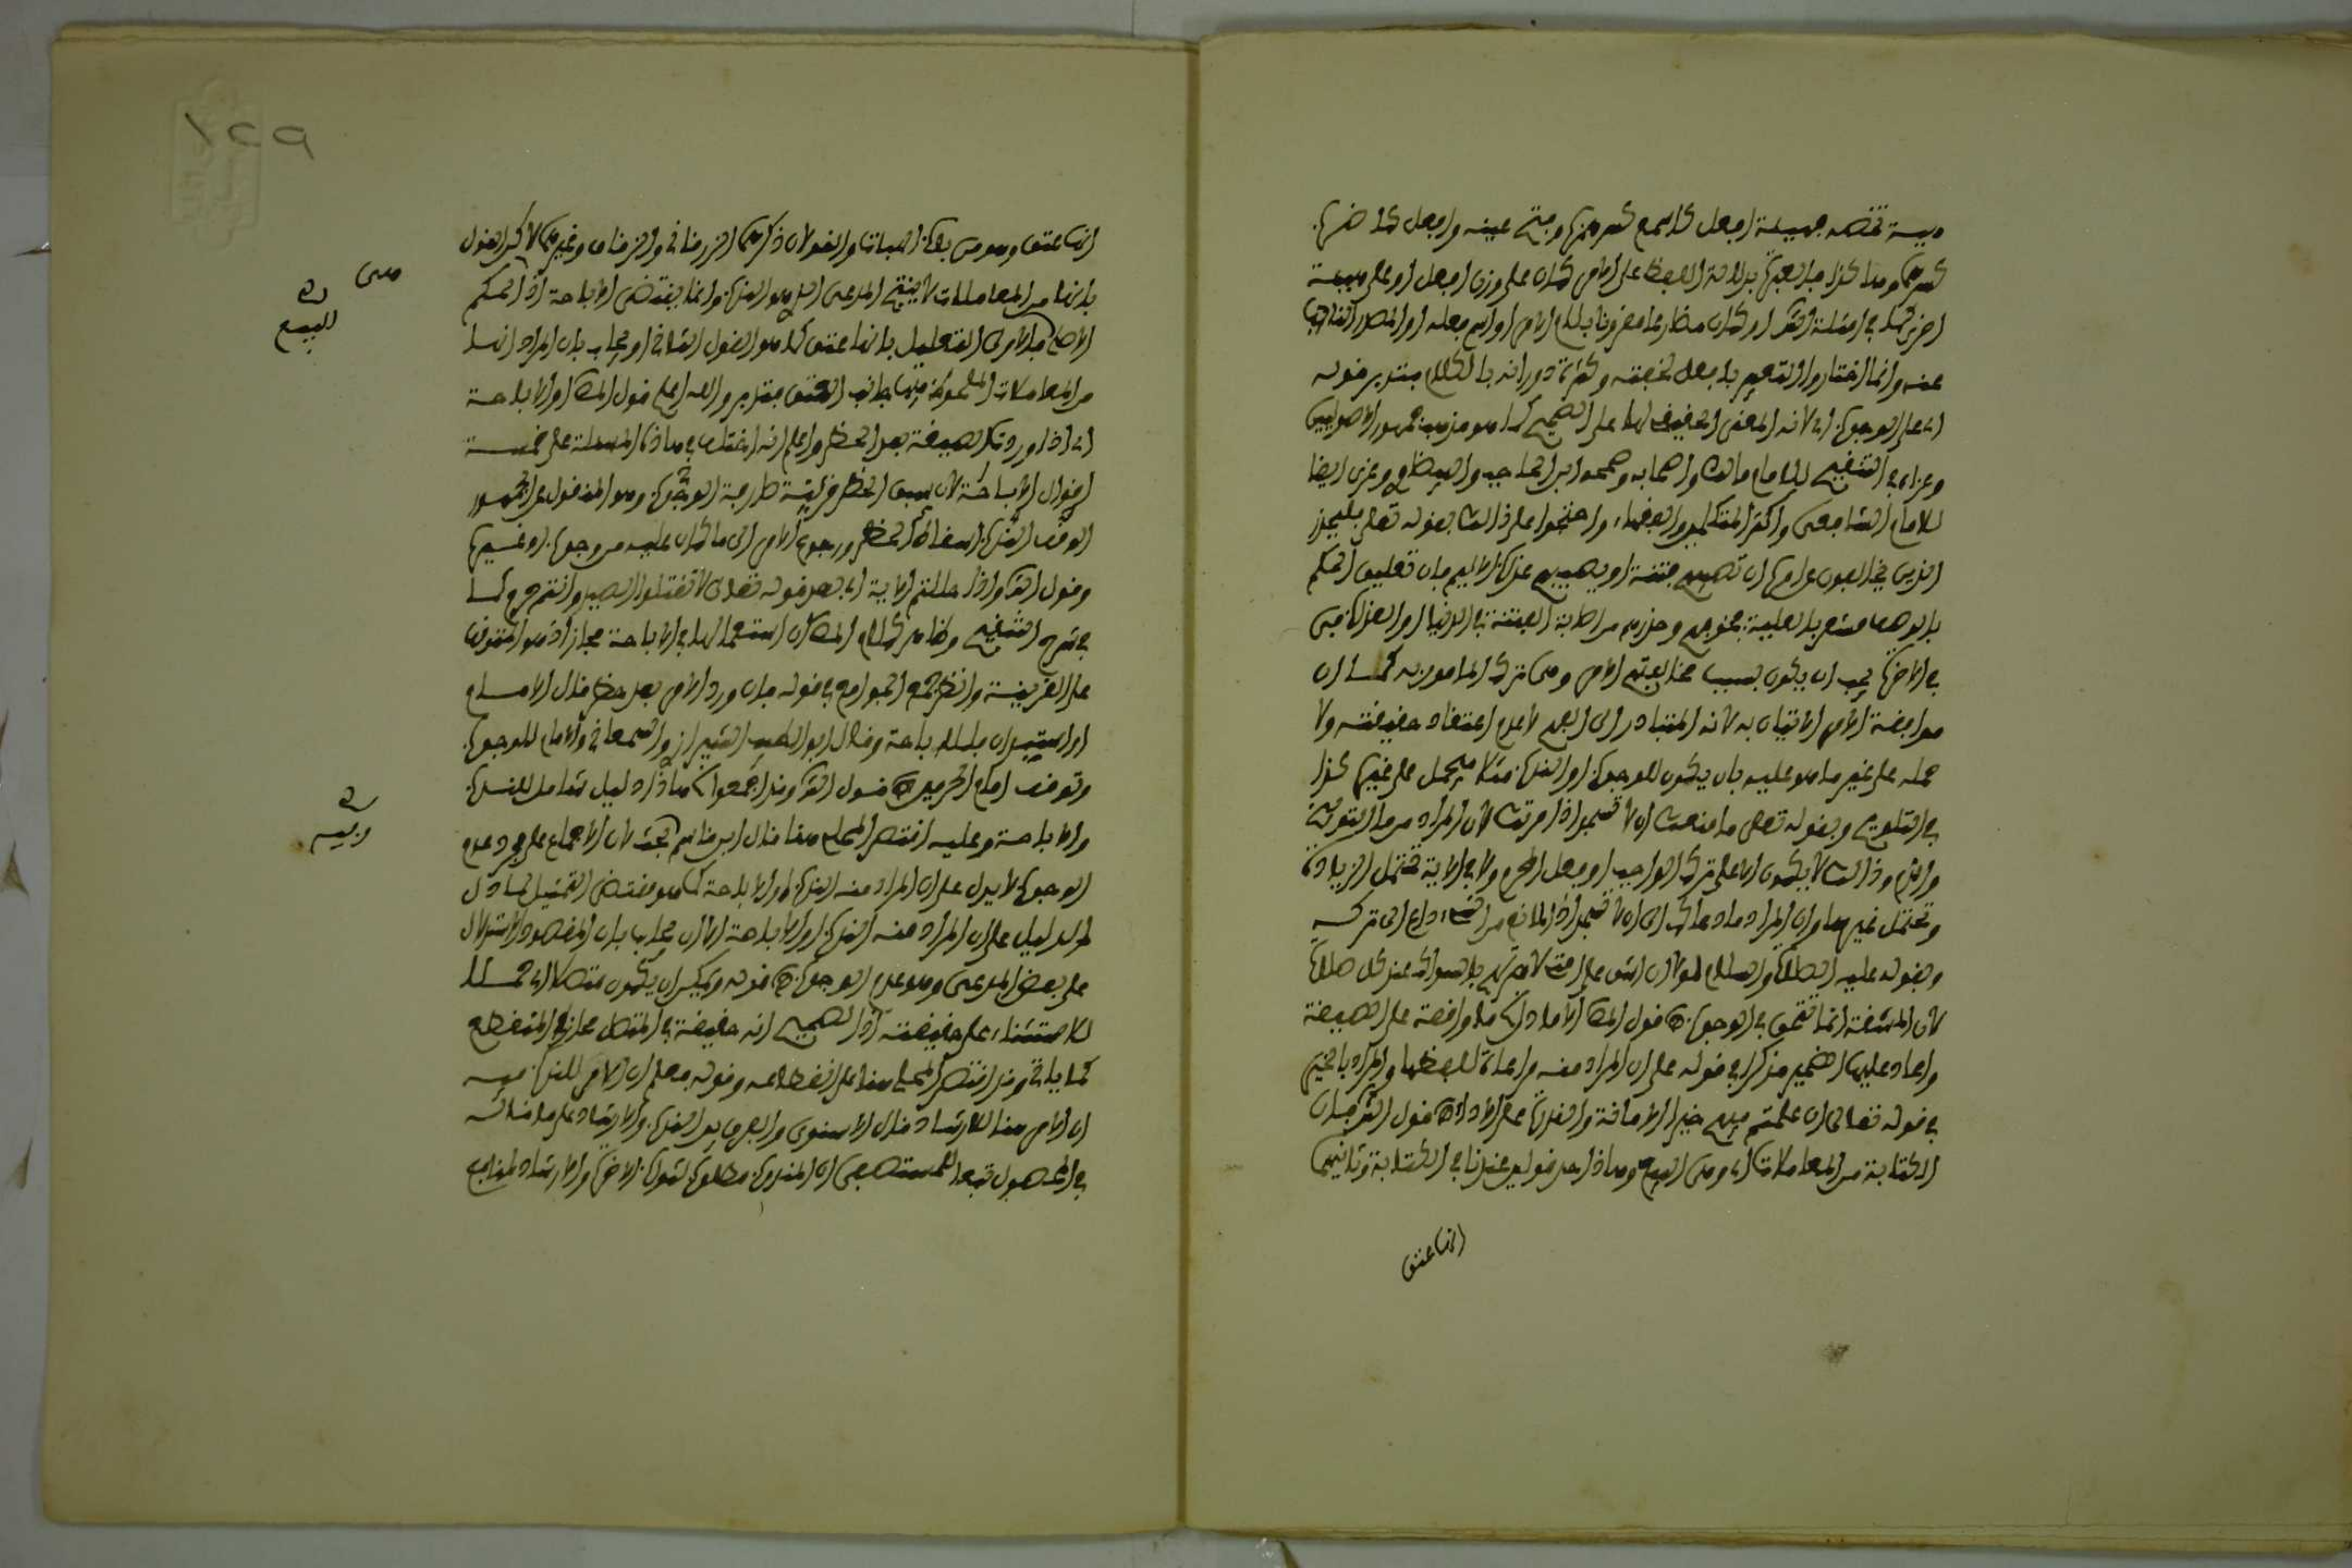 كسرهما وهذا كذا فيما يفهم بدلالة اللفظ على الأمر كان على وزن افعل او على صيغة
عنه وانما اختاروا التعبير بافعل لخفته وكثرة دورانه بالكلام فتدبر قوله
اي على الوجوب اي لأنه المعنى الحقيقي لها على الصحيح كما هو مذهب جمهور الأصوليين
وعزاه في التنقيح للإمام مالك وأصحابه وصححه ابن الحاجب والبيضاوي وعزي ايضا
للامام الشافعي وأكثر المتكلمين والفقهاء واحتجوا على ذلك بقوله تعلى فليحذر
الذين يخالفون عن امره ان تصيبهم فتنة او يصيبهم عذاب اليم فان تعليق الحكم
بالوصف مشعر بالعلية فخوفهم وحذرهم من اصابة الفتنة في الدنيا او العذاب
في الاخرة يجب ان يكون بسبب مخالفتهم الامر وهي ترك المامور به كما ان
موافقة الامر الاتيان به لأنه المتبادر الى الفهم لا عدم اعتقاد حقيقته ولا
حمله على غير ما هو عليه بان يكون للوجوب او الندب مثلا فيحمل على غيره كذا
في التلويح وبقوله تعلى ما منعك ان لا تسجد اذ امرتك لأن المراد من ما التوبيخ
والذم وذلك لا يكون الا على ترك الواجب او فعل المحرم ولا في الاية تحتمل الزيادة
وتحتمل غيرها وان المراد ما دعاك الى ان لا تسجد اذ المانع من الشيء داع الى تركه
وبقوله عليه الصلاة والسلام لولا ان اشق على امتي لأمرتهم بالسواك عند كل صلاة
لأن المشقة انما تتحقق في الوجوب قول المص الا ما دل ما واقعة على الصيغة
واعاد عليها الضمير مذكرا في قوله على ان المراد منه مراعاة للفظها والمراد بالخير
في قوله تعالى ان علمتم فيهم خيرا الأمانة والقدرة على الأداء قول الش فان
الكتابة من المعاملات اي وهي البيع وهذا احد قولين عندنا في الكتابة وثانيهما
انها عتق
١٢٩
انها عتق وهو من باب الهبات والقولان ذكرهما الزرقاني والزقاق وغيرهما لاكن القول
بانها من المعاملات لا ينتج المدعى الذي هو الندب وانما يقتضي الاباحة اذ الحكم
الأصل فالأولى التعليل بانها عتق كما هو القول الثاني او يجاب بان المراد انها
من المعاملات الملحوظ فيها جانب العتق فتدبر والله اعلم قول المص او الاباحة
اي اذا وردت الصيغة بعد الحظر واعلم انه اختلف في هاذه المسئلة على خمسة
اقوال الاباحة لأن سبق الحظر قرينة صارفة الوجوب وهو المنقول عن الجمهور
الوقف الندب اسقاط الحظر ورجوع الامر الى ما كان عليه من وجوب او غيره
وقول الش واذا حللتم الاية اي بعد قوله تعلى لا تقتلوا الصيد وانتم حرم كما
في شرح التنقيح وظاهر كلام المص ان استعمالها في الاباحة مجاز اذ هو المتوقف
على القرينة وانظر جمع الجوامع في قوله فان ورد الامر بعد حظر قال الامام
او استيذان فللاباحة وقال ابو الطيب الشيرازي والسمعاني والامام للوجوب
وتوقف امام الحرمين قول الش وقد اجمعوا هاذا دليل شامل للندب
والاباحة وعليه اقتصر المحلي هنا قال ابن قاسم بحث لأن الاجماع على عدم
الوجوب لا يدل على ان المراد منه الندب او الاباحة كما هو مقتضى التمثيل
الدليل على ان المراد منه الندب او الاباحة الا ان يجاب بان المقصود الاستدلال
على بعض المدعى وهو عدم الوجوب قوله ويمكن ان يكون متصلا اي حملا
للاستثناء على حقيقته اذ الصحيح انه حقيقة في المتصل مجاز في المنقطع
كما ياتي وقد اقتصر المحلي هنا على انقطاعه وقوله فعلم ان الامر للندب فيه
ان الامر هنا للارشاد قال الاسنوي والفرق بين الندب والارشاد على ما قاله
في المحصول تبعا للمستصفى ان المندوب مطلوب لثواب الاخرة والارشاد لمنافع
هي
للبيع
وفيه